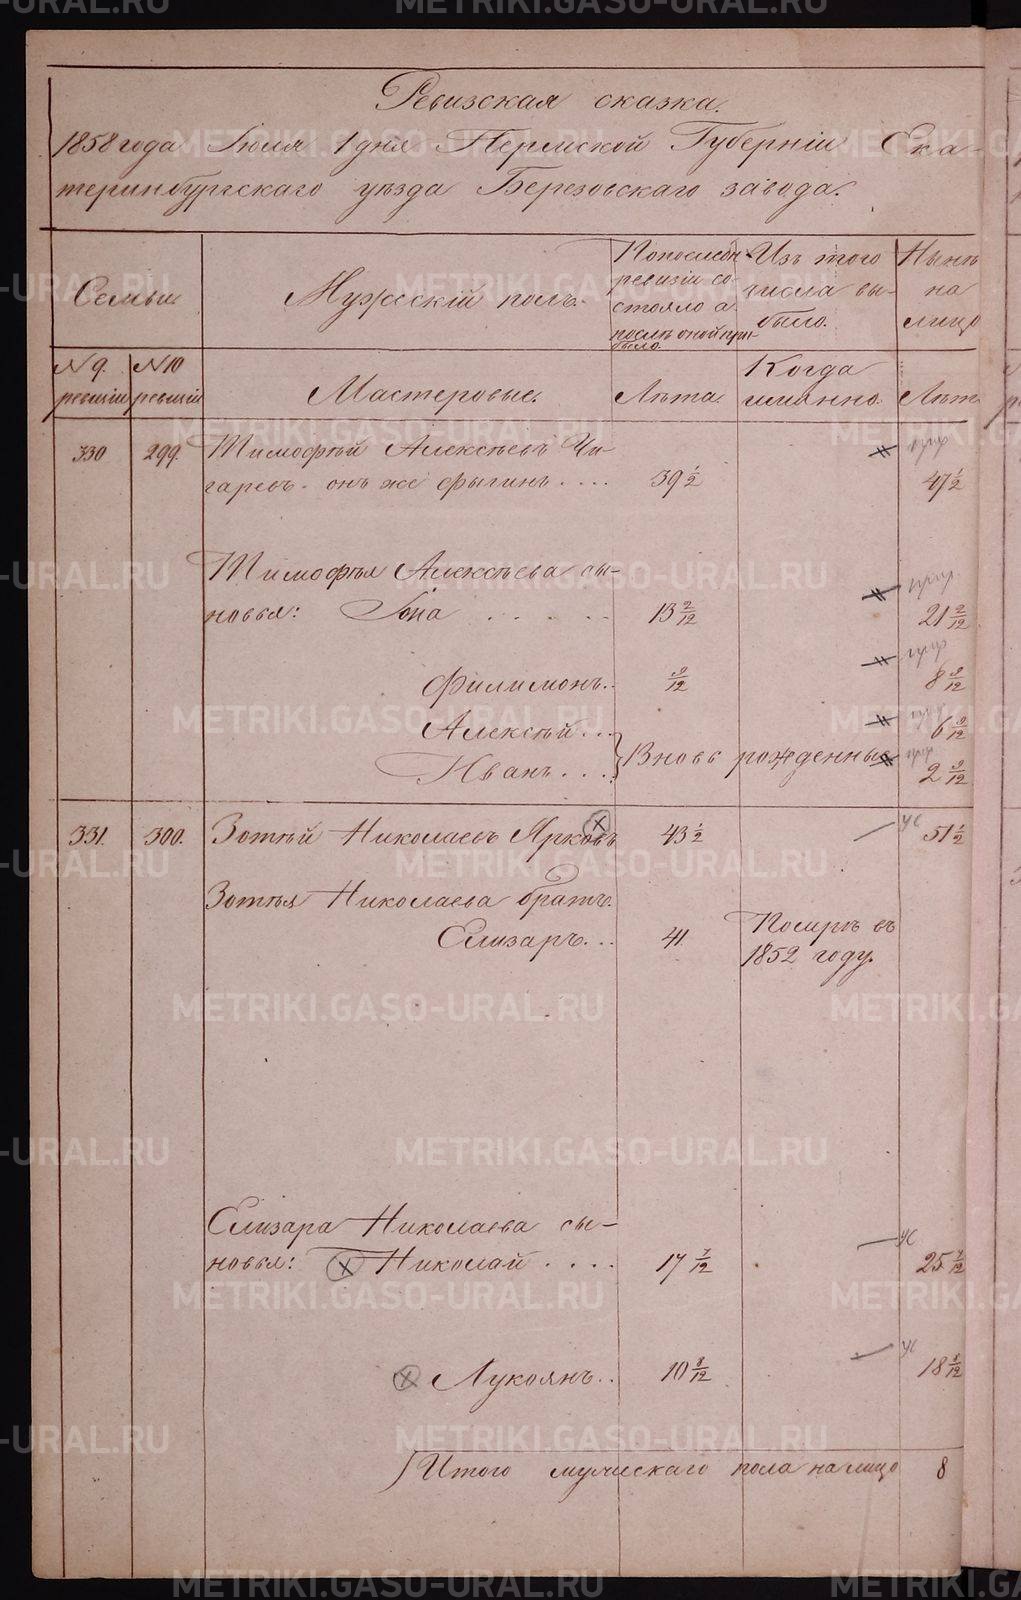 Ревизская сказка.
1858 года Июля 1 дня Пермской Губерніи Ека-
теринбургскаго уѣзда Березовскаго завода.
Семьи
Мужескій полъ.
По последн.
ревизіи со-
стояло а
послѣ оной при-
было.
Изъ того
числа вы-
было.
Нынѣ
на
лицо
№ 9.
ревизіи
№ 10
ревизіи
Мастеровые.
Лѣта.
Когда
именно.
Лѣт
330 299. Тимофѣй Алексѣевъ Чи-
гаревъ. онъ же Фыгинъ.... 39 1/2 47 1/2
Тимофѣя Алексѣева сы-
новья: Іона ..... 13 2/12 21 2/12
Филимонъ.. 9/12 8 9/12
Алексѣй... 6 9/12
Иванъ.... Вновь рожденные 2 9/12
331. 300. Зотѣй Николаевъ Ярковъ 43 1/2 ус 51 1/2
Зотѣя Николаева братъ.
Елизаръ... 41. Померъ въ
1852 году.
Елизара Николаева сы-
новья: Николай.... 17 7/12 ус 25 7/12
Лукоянъ.. 10 8/12 ус 18 8/12
Итого мужескаго пола на лицо 8
METRIKI.GASO-URAL.RU